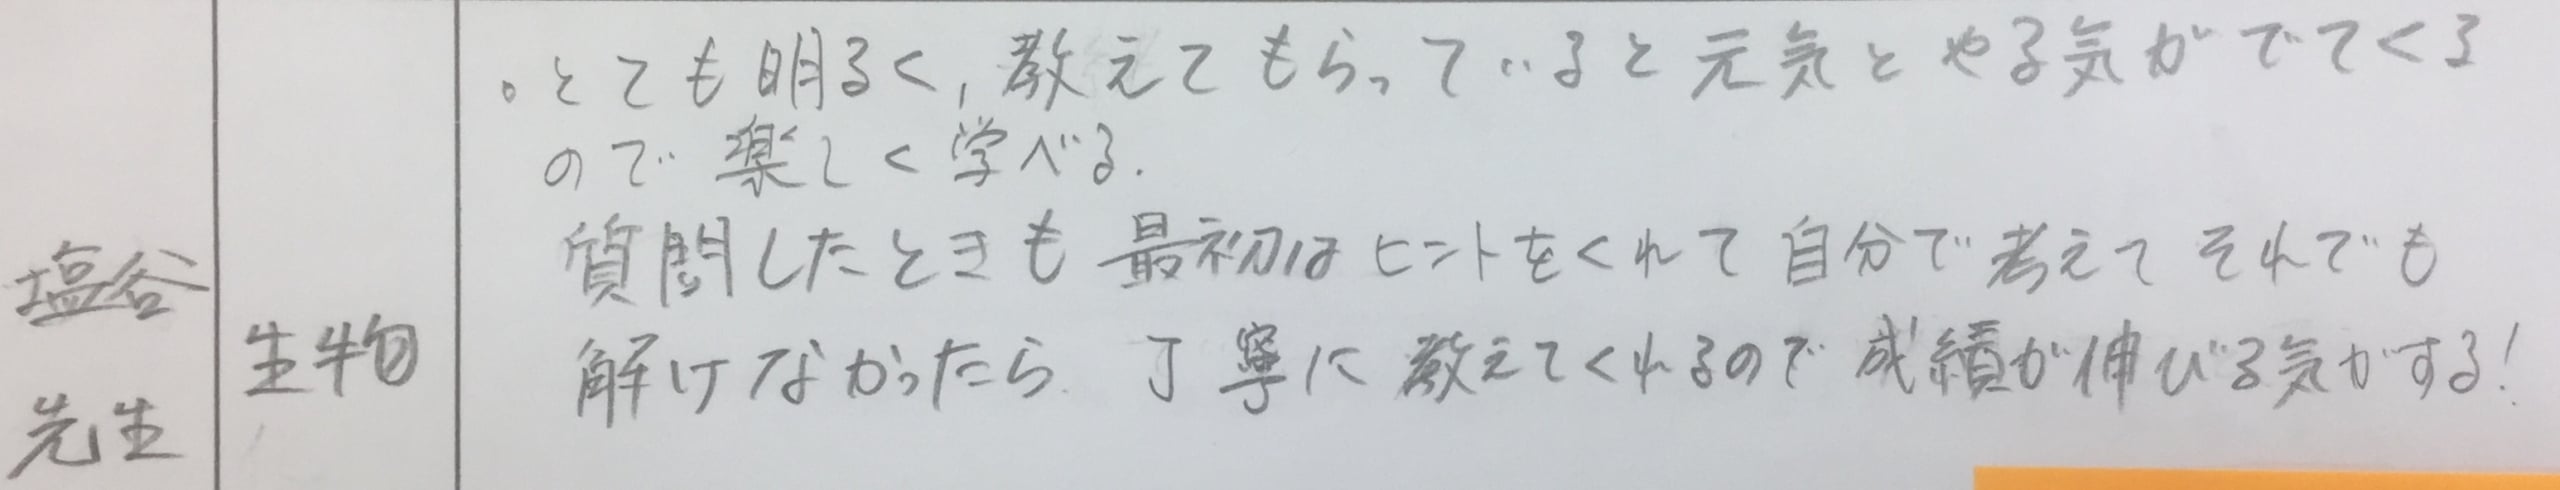 。とても明るく,教えてもらっていると元気とやる気がでてくる
ので楽しく学べる.
質問したときも最初はヒントをくれて自分で考えてそれでも
解けなかったら丁寧に教えてくれるので成績が伸びる気がする!
塩谷
先生
生物